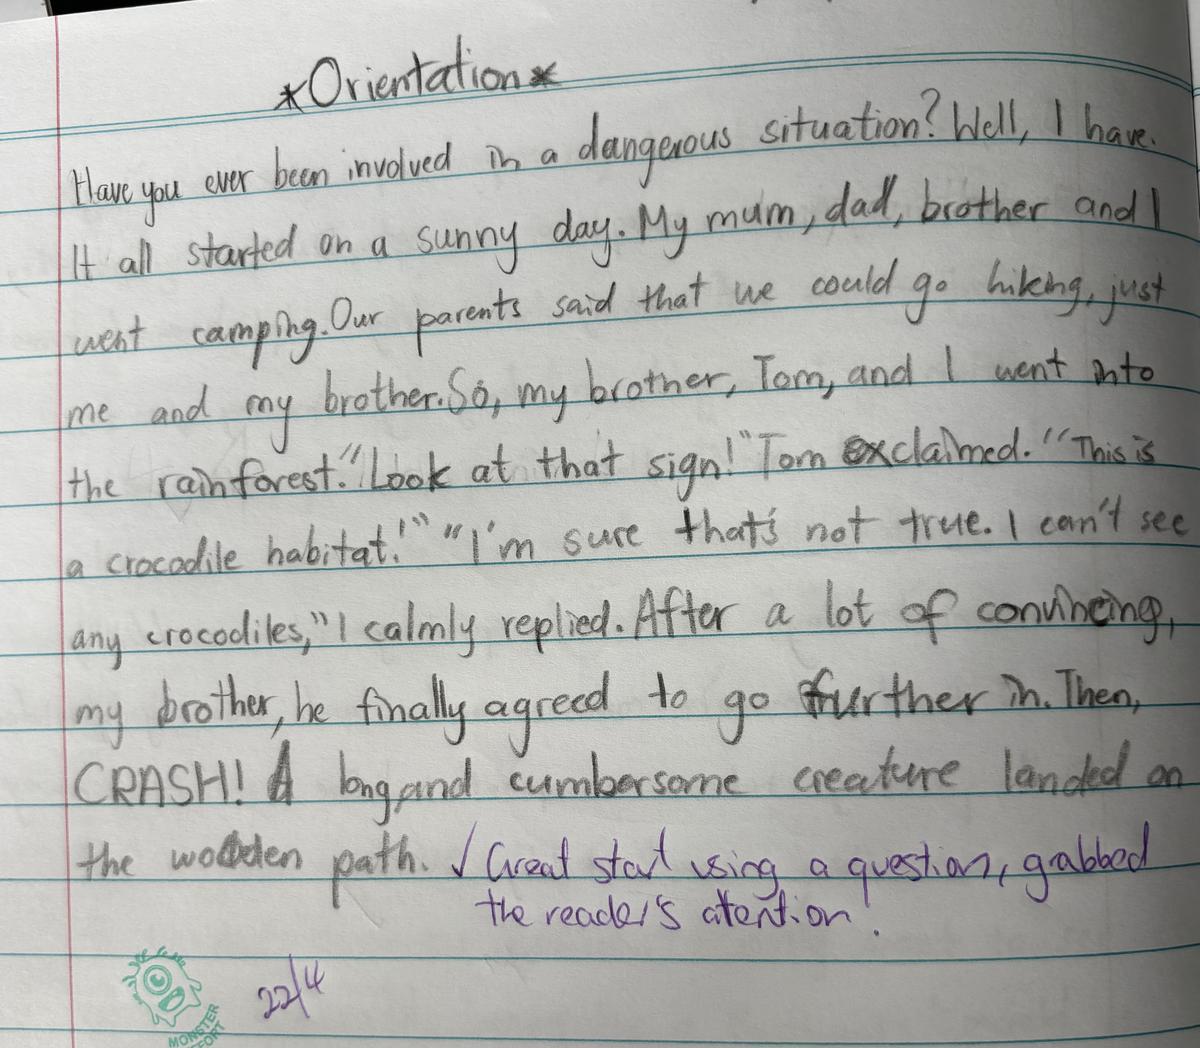 *Orientation*
Have you ever been involved in a dangerous situation? Well, I have.
It all started on a sunny day. My mum, dad, brother and I
went camping. Our parents said that we could go hiking, just
me and my brother. So, my brother, Tom, and I went into
the rainforest. "Look at that sign!" Tom exclaimed. "This is
a crocodile habitat!" "I'm sure that's not true. I can't see
any crocodiles," I calmly replied. After a lot of convincing,
my brother, he finally agreed to go further in. Then,
CRASH! A long, and cumbersome creature landed on
the wooden path. ✓ Great start using a question, grabbed
the reader's atention!
22/4
MONSTER